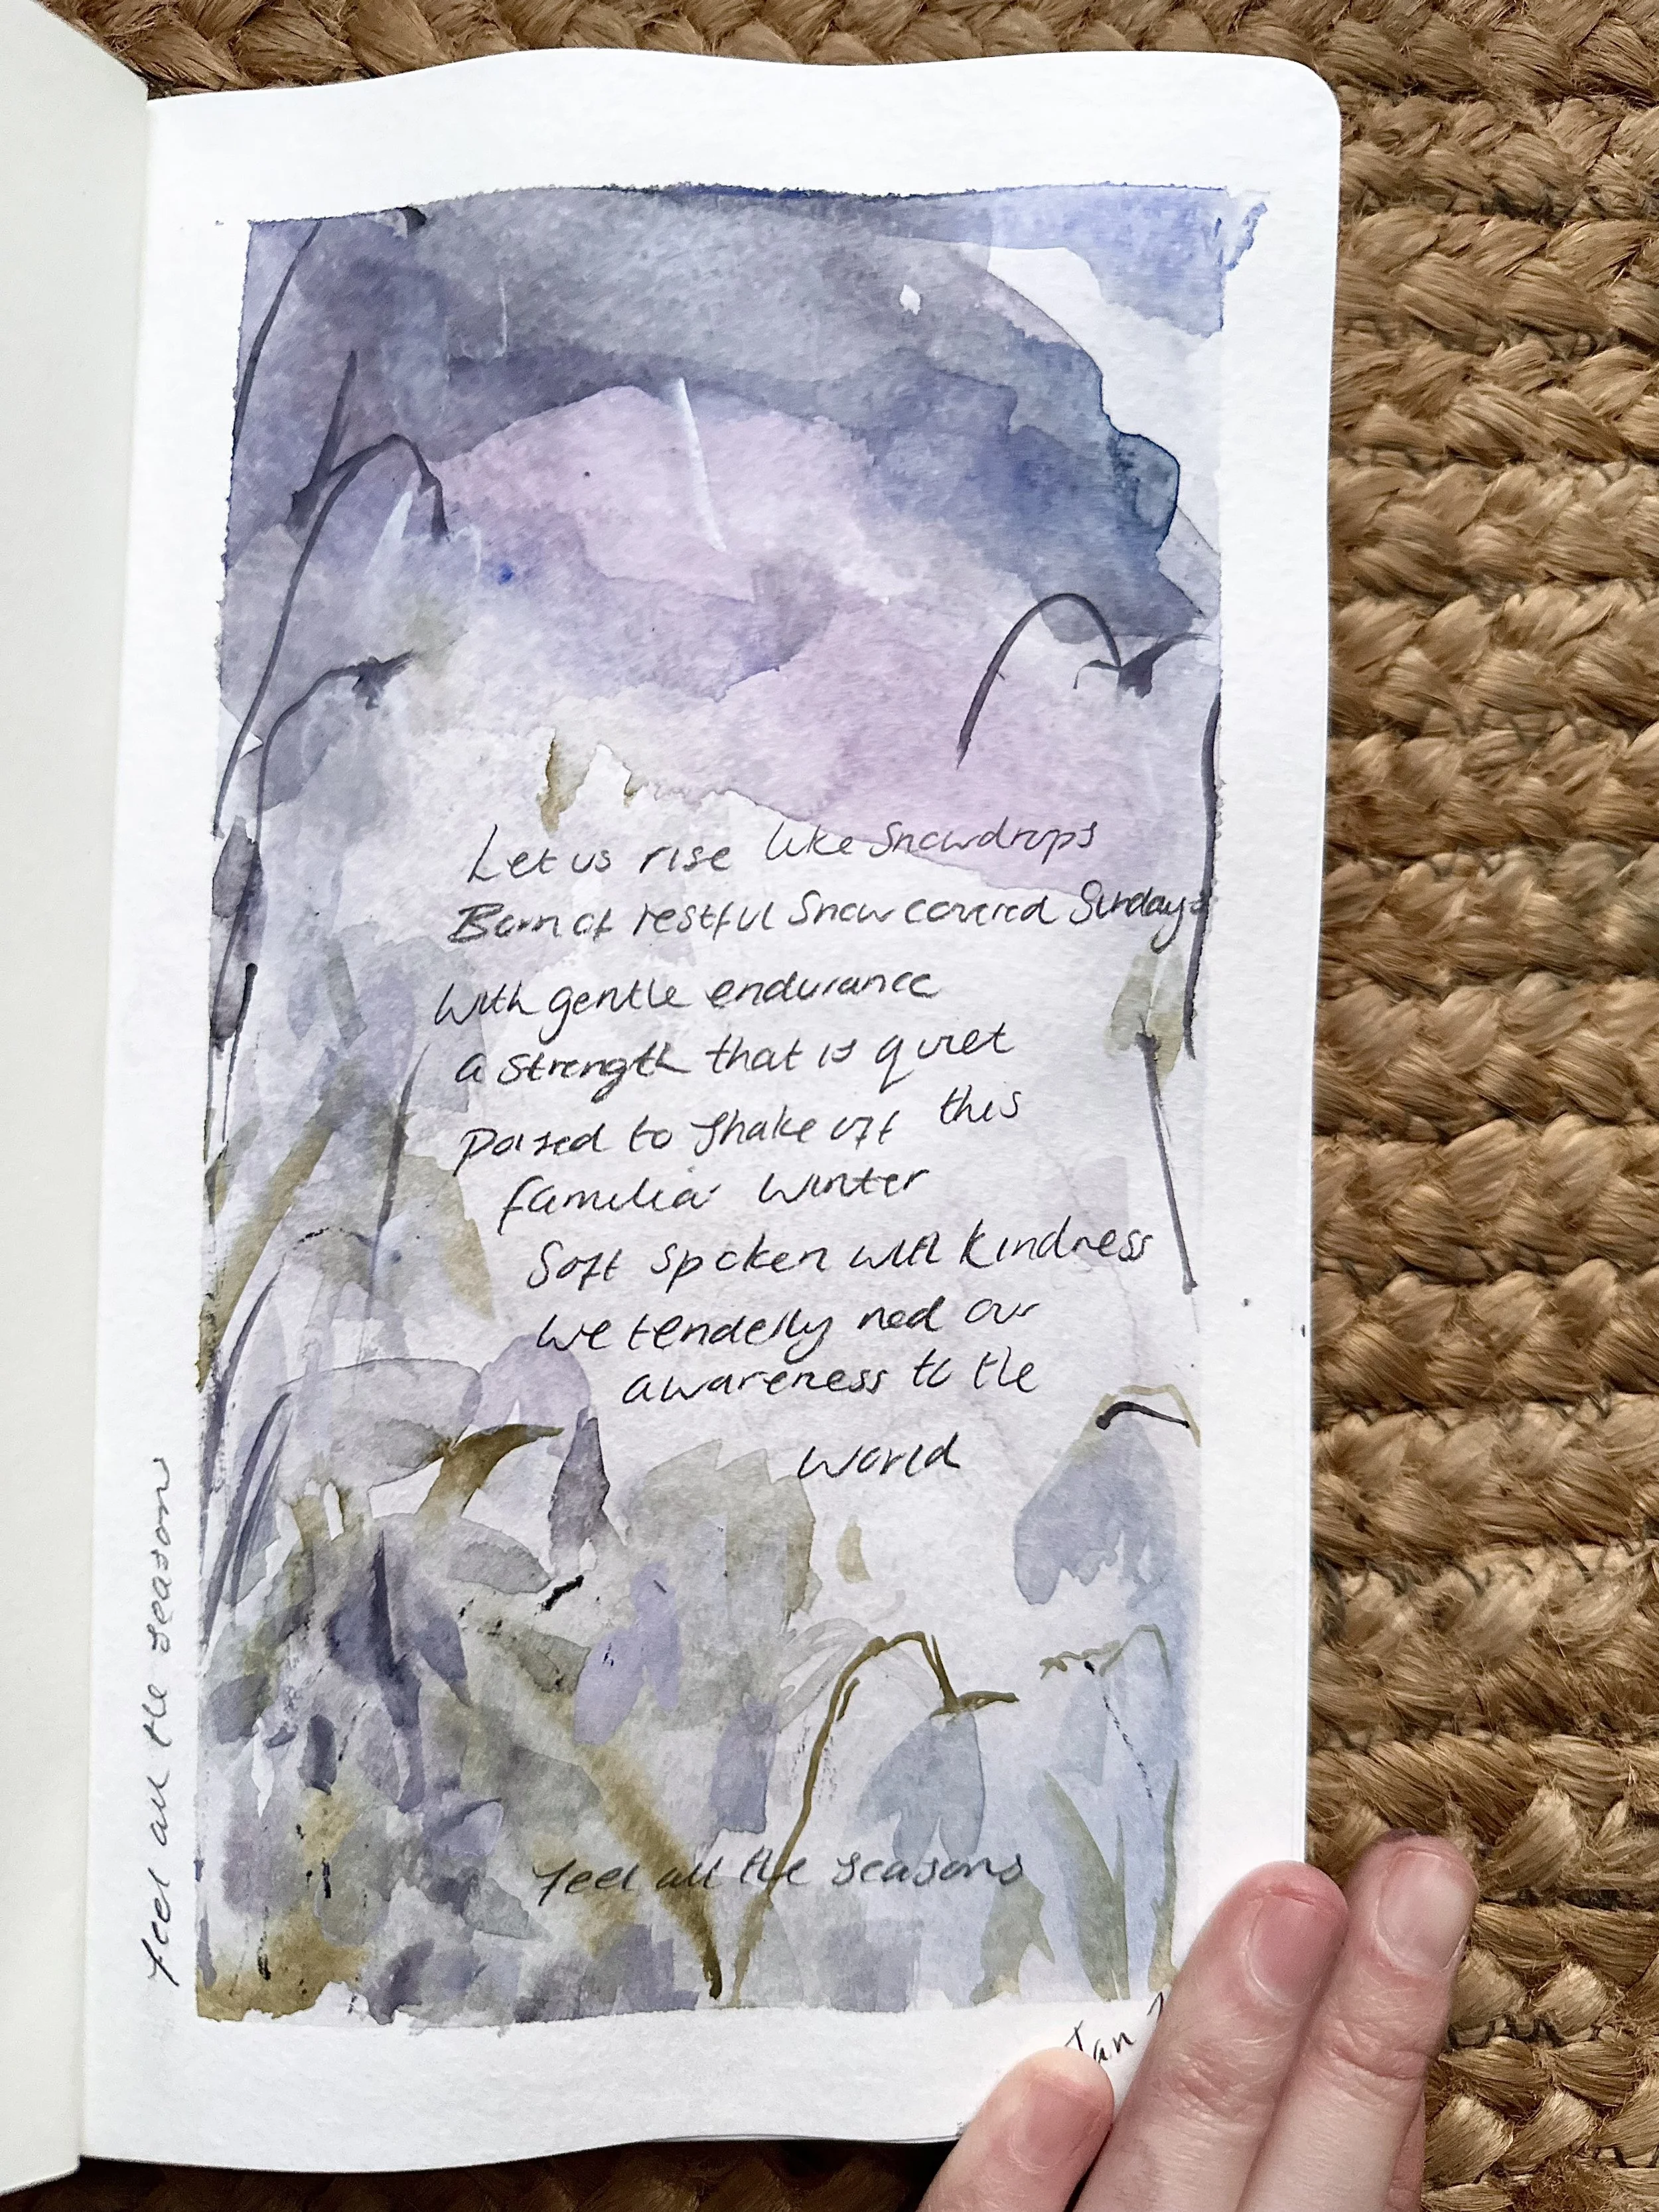 Let us rise like Snowdrops
Born of restful Snow covered Sundays
With gentle endurance
a strength that is quiet
Poised to shake off this
familiar Winter
Soft spoken with kindness
We tenderly nod our
awareness to the
World
feel all the seasons
feel all the season
Jan